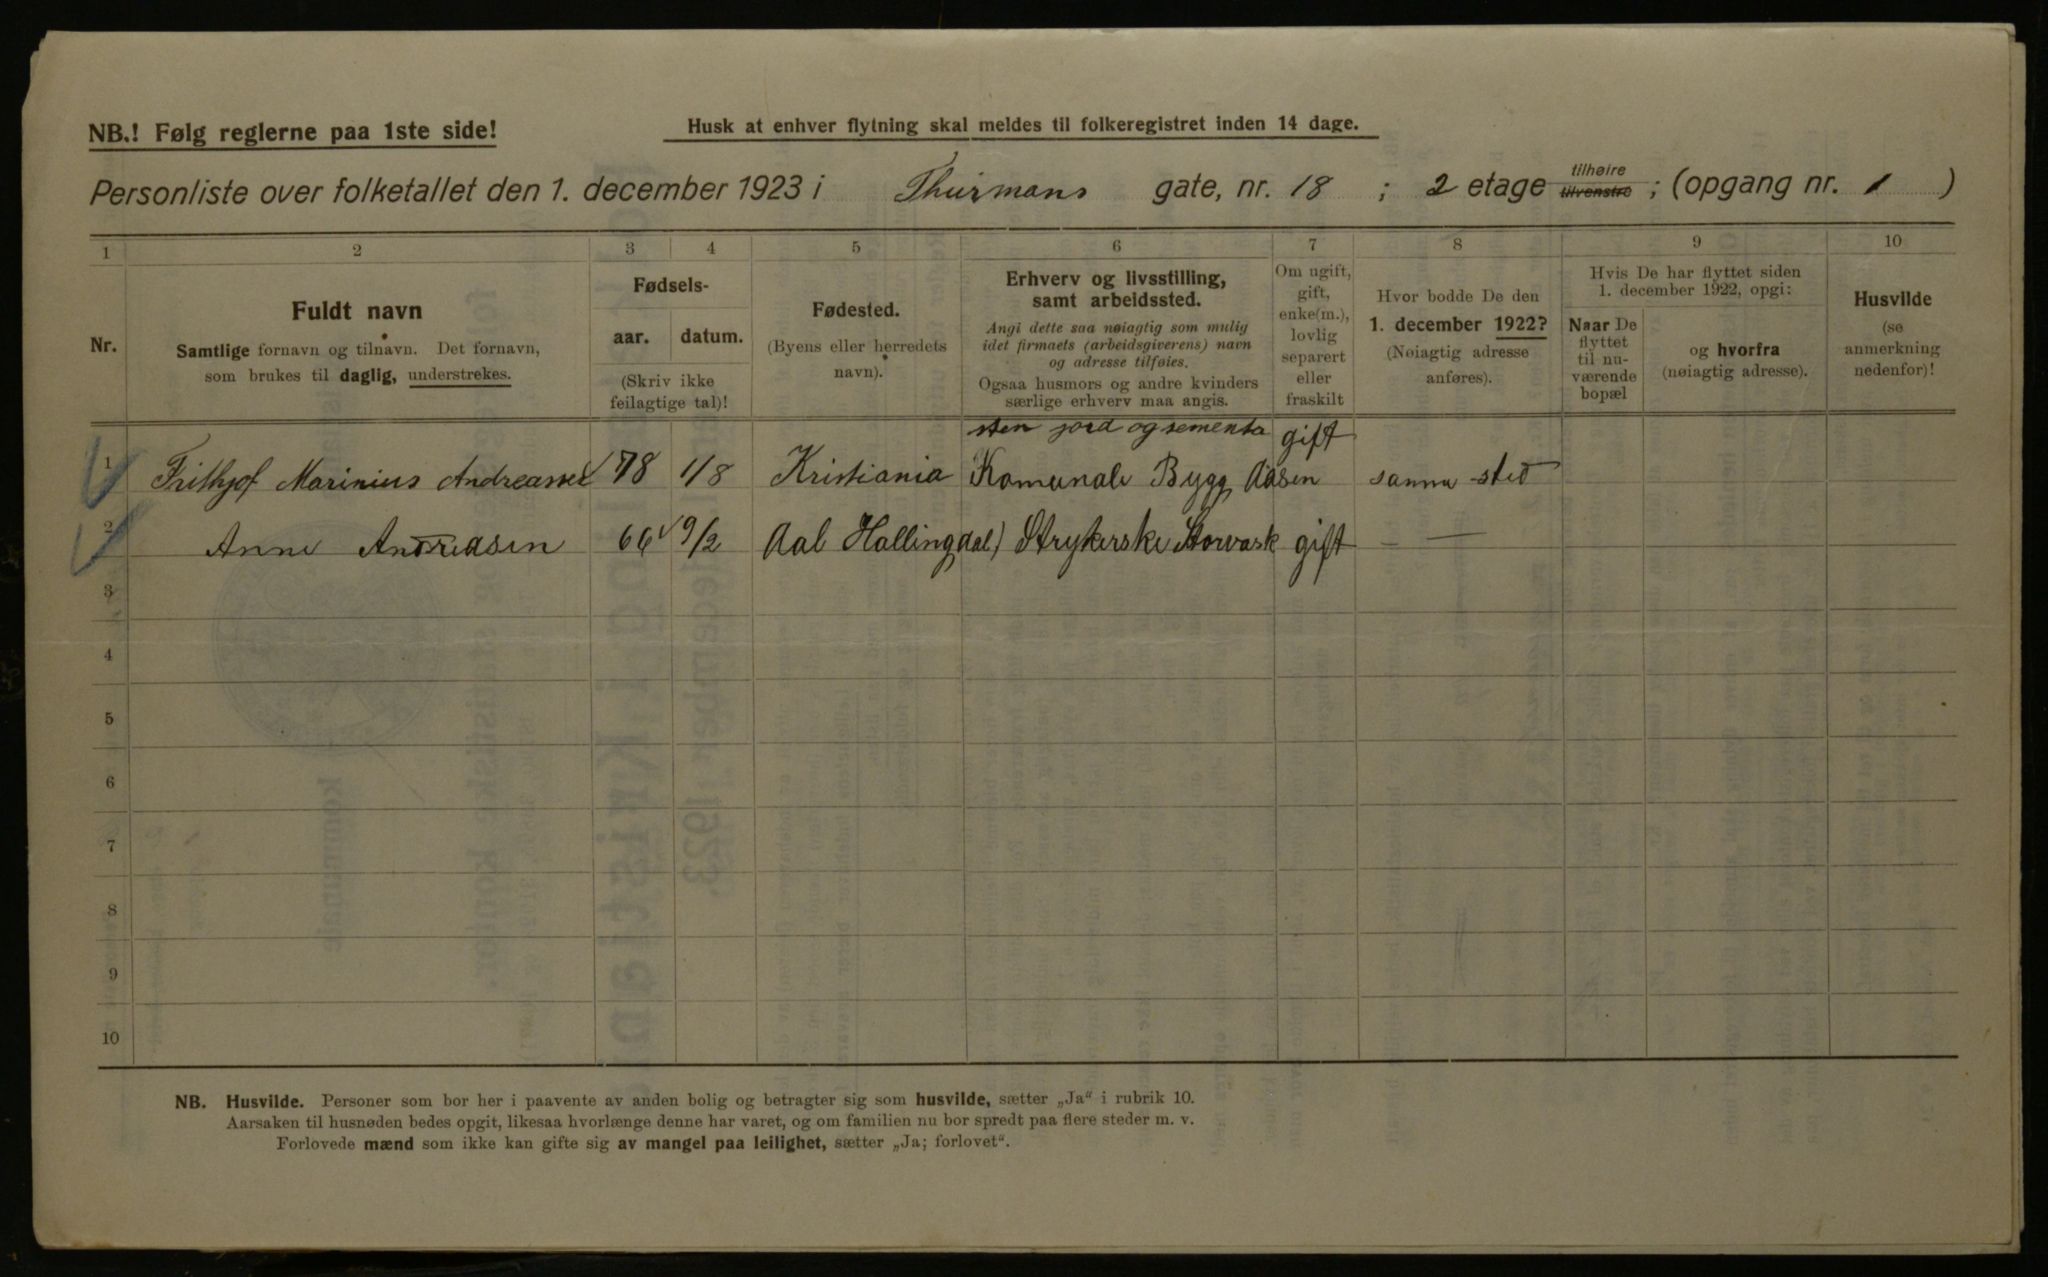 NB.! Følg reglerne paa 1ste side!
Husk at enhver flytning skal meldes til folkeregistret inden 14 dage.
Personliste over folketallet den 1. december 1923 i Thurmans gate, nr. 18 ; 2 etage tilhøire tilvenstre ; (opgang nr. 1 )
1 2 3 4 5 6 7 8 9 10
Nr.
Fuldt navn
Samtlige fornavn og tilnavn. Det fornavn,
som brukes til daglig, understrekes.
Fødsels-
aar. datum.
(Skriv ikke
feilagtige tal)!
Fødested.
(Byens eller herredets
navn).
Erhverv og livsstilling,
samt arbeidssted.
Angi dette saa nøiagtig som mulig
idet firmaets (arbeidsgiverens) navn
og adresse tilføies.
Ogsaa husmors og andre kvinders
særlige erhverv maa angis.
Om ugift,
gift,
enke(m.),
lovlig
separert
eller
fraskilt
Hvor bodde De den
1. december 1922?
(Nøiagtig adresse
anføres).
Hvis De har flyttet siden
1. december 1922, opgi:
Naar De
flyttet
til nu-
værende
bopæl
og hvorfra
(nøiagtig adresse).
Husvilde
(se
anmerkning
nedenfor)!
sten jord og sementa
1 Frithjof Marinius Andreassen 78 1/8 Kristiania Komunale Bygg Aasen gift samme sted
2 Anne Andreasen 66 9/2 Aal Hallingdal) Strykerske Storvask gift - —
3
4
5
6
7
8
9
10
NB. Husvilde. Personer som bor her i paavente av anden bolig og betragter sig som husvilde, sætter „Ja" i rubrik 10.
Aarsaken til husnøden bedes opgit, likesaa hvorlænge denne har varet, og om familien nu bor spredt paa flere steder m. v.
Forlovede mænd som ikke kan gifte sig av mangel paa leilighet, sætter „Ja; forlovet".